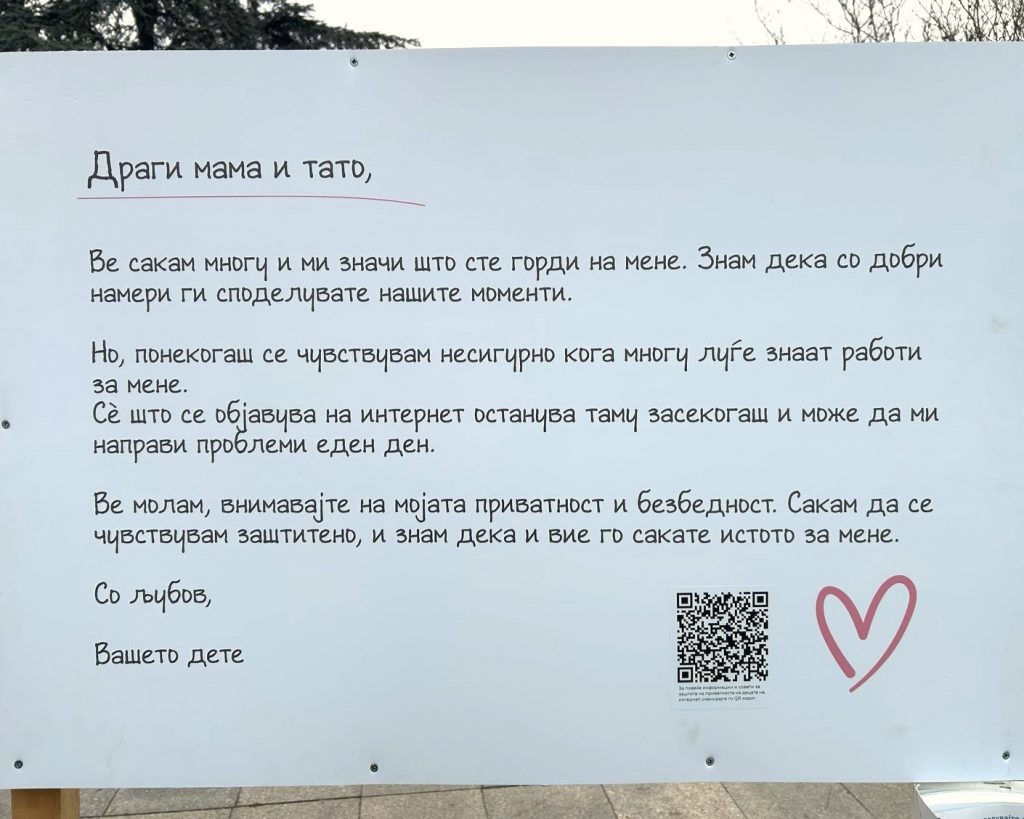 Драги мама и тато,
Ве сакам многу и ми значи што сте горди на мене. Знам дека со добри
намери ги споделувате нашите моменти.
Но, понекогаш се чувствувам несигурно кога многу луѓе знаат работи
за мене.
Сѐ што се објавува на интернет останува таму засекогаш и може да ми
направи проблеми еден ден.
Ве молам, внимавајте на мојата приватност и безбедност. Сакам да се
чувствувам заштитено, и знам дека и вие го сакате истото за мене.
Со љубов,
Вашето дете
За повеќе информации и совети за
заштита на приватноста на децата на
интернет, скенирајте го QR кодот.